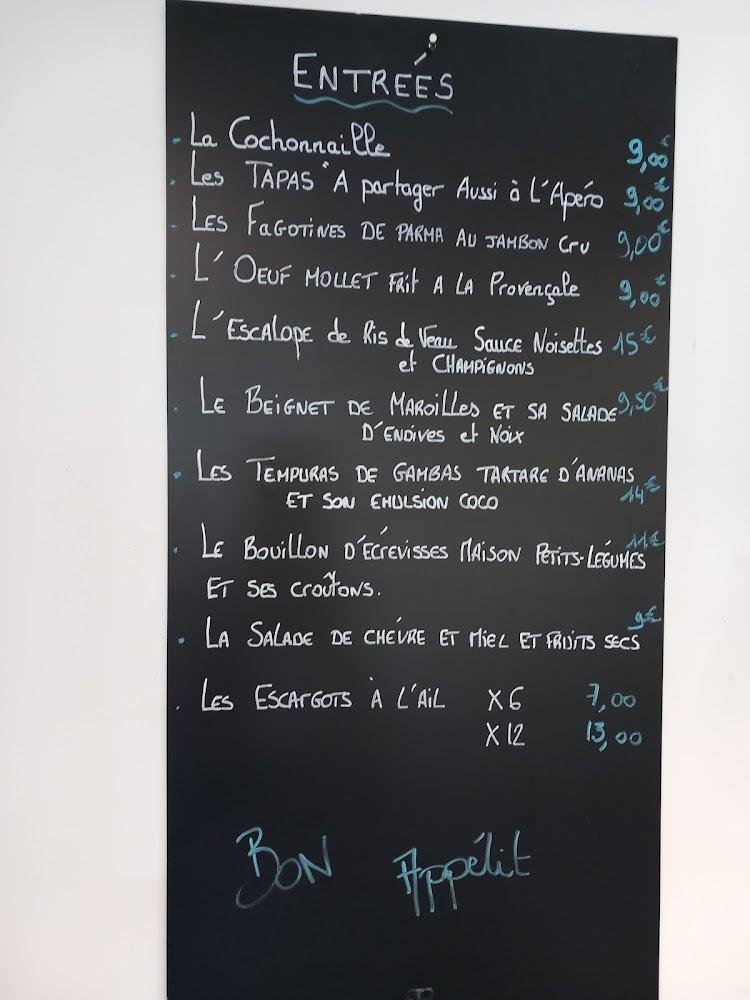 ENTREÉS
- La Cochonnaille 9,00€
- Les TAPAS "A partager Aussi à L'Apéro 9,00€
- LES FAGOTINES DE PARMA AU JAMBON Cru 9,00€
- L'OEUF MOLLET Frit A LA Provençale 9,00€
- L'ESCALOPE de Ris de Veau Sauce Noisettes 15€
et CHAMPIGNONS
- LE BEIGNET DE MAROILLES ET SA SALADE 9,50€
D'ENDIVES et NOIX
- LES TEMPURAS DE GAMBAS TARTARE D'ANANAS
ET SON EMULSION COCO 14€
- LE BOUILLON D'ÉCREVISSES MAISON PETITS-LÉGUMES 11€
ET SES CROÛTONS.
- LA SALADE DE CHÉVRE ET MIEL ET FRUITS SECS 9€
- LES ESCARGOTS À L'AIL X6 7,00
X12 13,00
BON Appétit